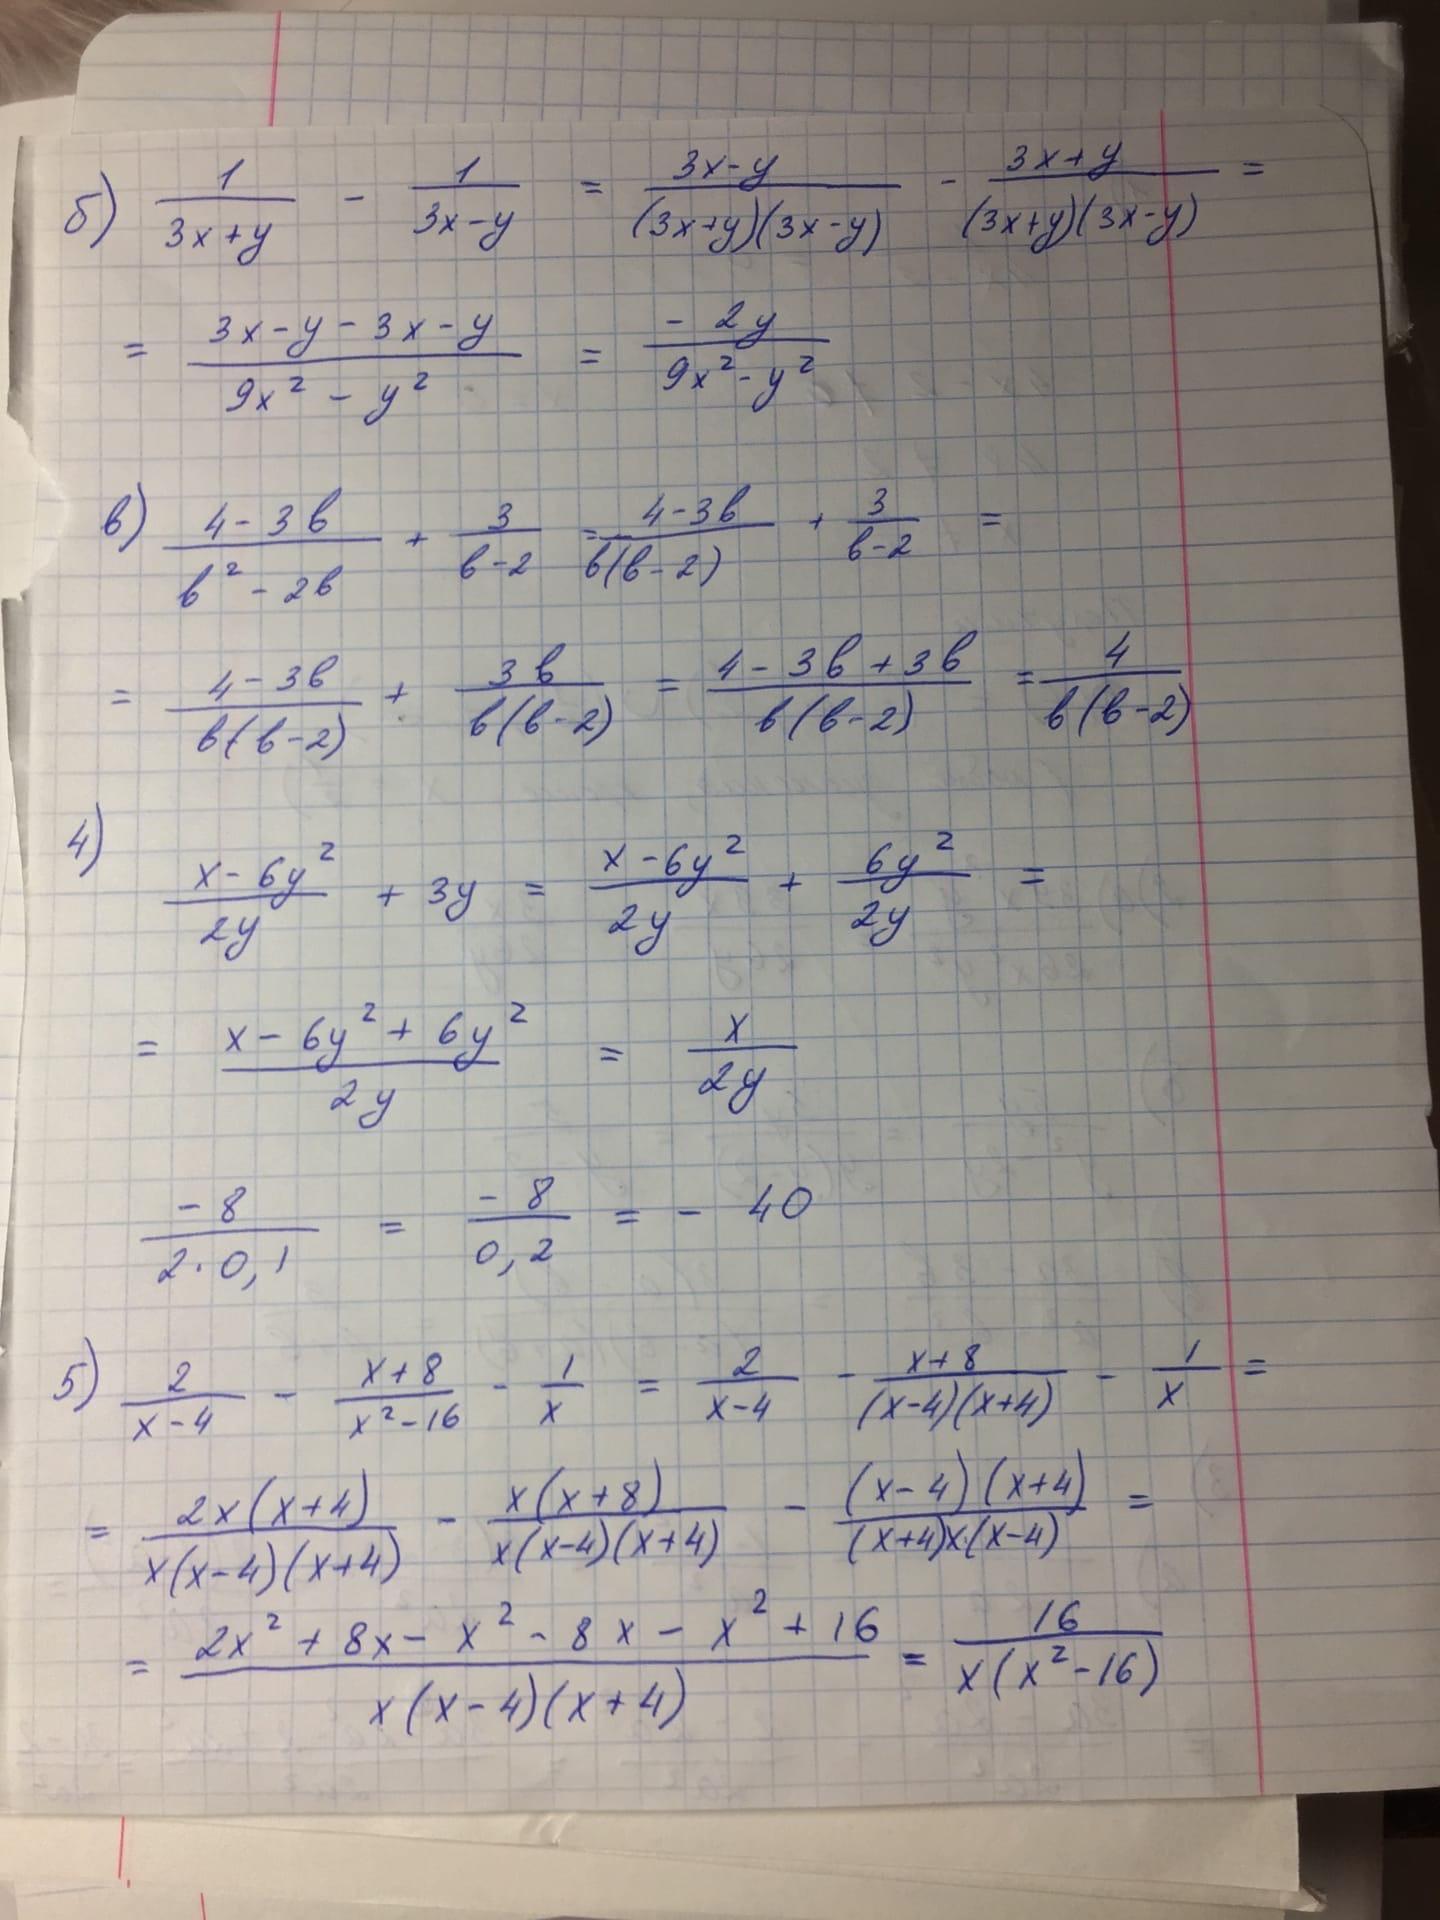 б) 1/(3x+y) - 1/(3x-y) = (3x-y)/((3x+y)(3x-y)) - (3x+y)/((3x+y)(3x-y)) =
= (3x-y-3x-y)/(9x²-y²) = (-2y)/(9x²-y²)
в) (4-3в)/(в²-2в) + 3/(в-2) = (4-3в)/(в(в-2)) + 3/(в-2) =
= (4-3в)/(в(в-2)) + 3в/(в(в-2)) = (4-3в+3в)/(в(в-2)) = 4/(в(в-2))
4) (x-6y²)/(2y) + 3y = (x-6y²)/(2y) + 6y²/(2y) =
= (x-6y²+6y²)/(2y) = x/(2y)
-8/(2·0,1) = -8/(0,2) = -40
5) 2/(x-4) - (x+8)/(x²-16) - 1/x = 2/(x-4) - (x+8)/((x-4)(x+4)) - 1/x =
= 2x(x+4)/(x(x-4)(x+4)) - x(x+8)/(x(x-4)(x+4)) - (x-4)(x+4)/((x+4)x(x-4)) =
= (2x²+8x-x²-8x-x²+16)/(x(x-4)(x+4)) = 16/(x(x²-16))